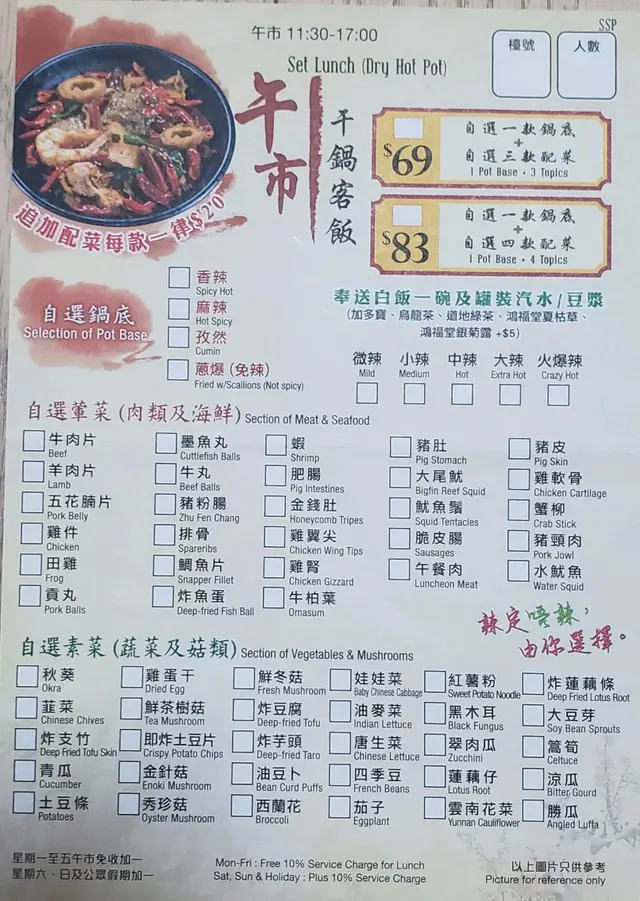 SSP
午市 11:30-17:00
Set Lunch (Dry Hot Pot)
檯號
人數
午市
干鍋客飯
$69
自選一款鍋底
+
自選三款配菜
1 Pot Base・3 Topics
$83
自選一款鍋底
+
自選四款配菜
1 Pot Base・4 Topics
追加配菜每款一律$20
自選鍋底
Selection of Pot Base
香辣
Spicy Hot
麻辣
Hot Spicy
孜然
Cumin
蔥爆 (免辣)
Fried w/Scallions (Not spicy)
奉送白飯一碗及罐裝汽水/豆漿
(加多寶、烏龍茶、道地綠茶、鴻福堂夏枯草、
鴻福堂銀菊露 +$5)
微辣 小辣 中辣 大辣 火爆辣
Mild Medium Hot Extra Hot Crazy Hot
自選葷菜 (肉類及海鮮) Section of Meat & Seafood
牛肉片 墨魚丸 蝦 豬肚 豬皮
Beef Cuttlefish Balls Shrimp Pig Stomach Pig Skin
羊肉片 牛丸 肥腸 大尾魷 雞軟骨
Lamb Beef Balls Pig Intestines Bigfin Reef Squid Chicken Cartilage
五花腩片 豬粉腸 金錢肚 魷魚鬚 蟹柳
Pork Belly Zhu Fen Chang Honeycomb Tripes Squid Tentacles Crab Stick
雞件 排骨 雞翼尖 脆皮腸 豬頸肉
Chicken Spareribs Chicken Wing Tips Sausages Pork Jowl
田雞 鯛魚片 雞腎 午餐肉 水魷魚
Frog Snapper Fillet Chicken Gizzard Luncheon Meat Water Squid
貢丸 炸魚蛋 牛柏葉
Pork Balls Deep-fried Fish Ball Omasum
辣定唔辣，
由你選擇。
自選素菜 (蔬菜及菇類) Section of Vegetables & Mushrooms
秋葵 雞蛋干 鮮冬菇 娃娃菜 紅薯粉 炸蓮藕條
Okra Dried Egg Fresh Mushroom Baby Chinese Cabbage Sweet Potato Noodle Deep Fried Lotus Root
韮菜 鮮茶樹菇 炸豆腐 油麥菜 黑木耳 大豆芽
Chinese Chives Tea Mushroom Deep-fried Tofu Indian Lettuce Black Fungus Soy Bean Sprouts
炸支竹 即炸土豆片 炸芋頭 唐生菜 翠肉瓜 萵筍
Deep Fried Tofu Skin Crispy Potato Chips Deep-fried Taro Chinese Lettuce Zucchini Celtuce
青瓜 金針菇 油豆卜 四季豆 蓮藕仔 涼瓜
Cucumber Enoki Mushroom Bean Curd Puffs French Beans Lotus Root Bitter Gourd
土豆條 秀珍菇 西蘭花 茄子 雲南花菜 勝瓜
Potatoes Oyster Mushroom Broccoli Eggplant Yunnan Cauliflower Angled Luffa
星期一至五午市免收加一
星期六、日及公眾假期加一
Mon-Fri : Free 10% Service Charge for Lunch
Sat, Sun & Holiday : Plus 10% Service Charge
以上圖片只供參考
Picture for reference only